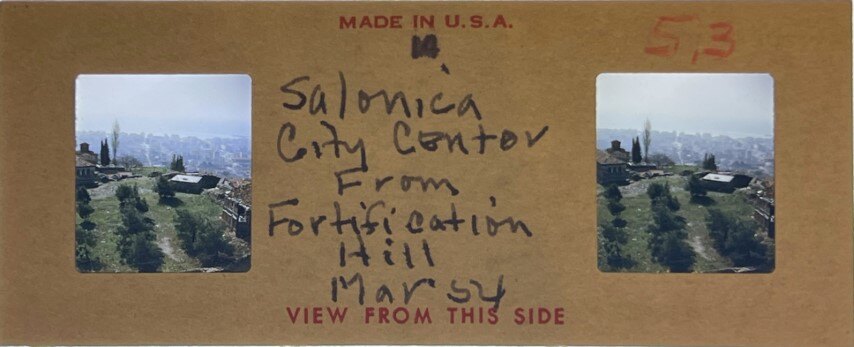 MADE IN U.S.A.
5,3
Salonica
City Center
From
Fortification
Hill
Mar 54
VIEW FROM THIS SIDE